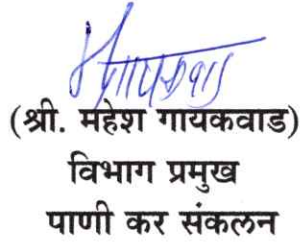 (श्री. महेश गायकवाड)
विभाग प्रमुख
पाणी कर संकलन